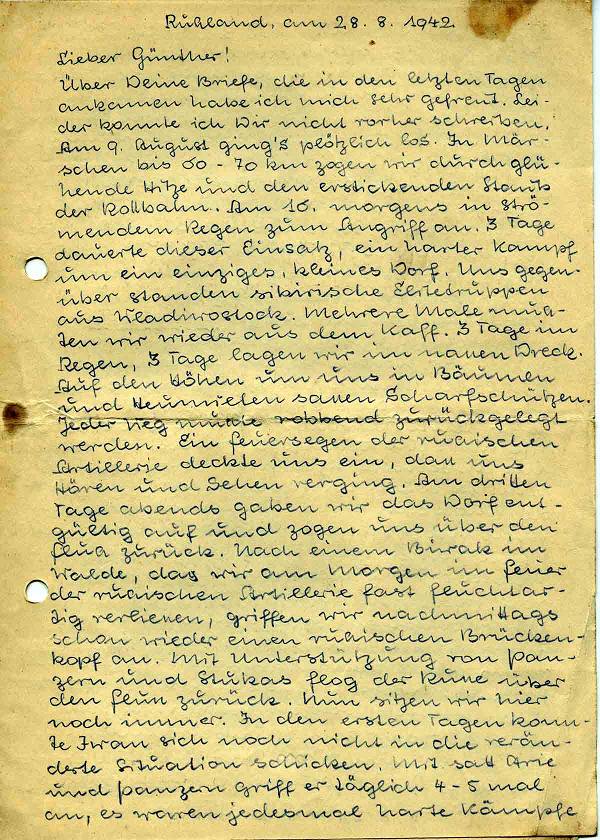 Rußland, am 28. 8. 1942
Lieber Günther!
Über Deine Briefe, die in den letzten Tagen
ankamen habe ich mich sehr gefreut. Lei-
der konnte ich Dir nicht vorher schreiben.
Am 9. August ging's plötzlich los. In Mär-
schen bis 60 - 70 km zogen wir durch glü-
hende Hitze und den erstickenden Staub
der Rollbahn. Am 10. morgens in strö-
mendem Regen zum Angriff an. 3 Tage
dauerte dieser Einsatz, ein harter Kampf
um ein einziges, kleines Dorf. Uns gegen-
über standen sibirische Elitetruppen
aus Wladiwostock. Mehrere Male muß-
ten wir wieder aus dem Kaff. 3 Tage im
Regen, 3 Tage lagen wir im nassen Dreck.
Auf den Höhen um uns in Bäumen
und Heumieten sassen Scharfschützen.
Jeder Weg mußte robbend zurückgelegt
werden. Ein Feuersegen der rußischen
Artillerie deckte uns ein, daß uns
Hören und Sehen verging. Am dritten
Tage abends gaben wir das Dorf ent-
gültig auf und zogen uns über den
Fluß zurück. Nach einem Biwak im
Walde, das wir am Morgen im Feuer
der rußischen Artillerie fast fluchtar-
tig verliessen, griffen wir nachmittags
schon wieder einen rußischen Brücken-
kopf an. Mit Unterstützung von Pan-
zern und Stukas flog der Russe über
den Fluss zurück. Nun sitzen wir hier
noch immer. In den ersten Tagen konn-
te Iwan sich noch nicht in die verän-
derte Situation schicken. Mit satt Arie
und Panzern griff er täglich 4 - 5 mal
an, es waren jedesmal harte Kämpfe